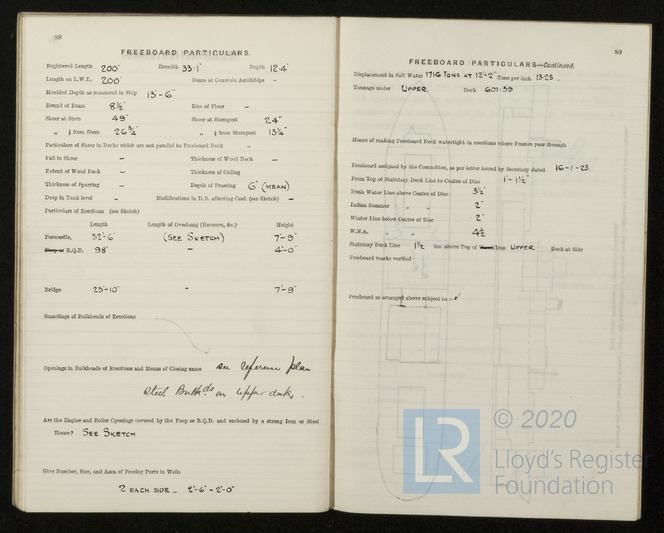 88
FREEBOARD PARTICULARS.
Registered Length 200' Breadth 33·1' Depth 12·4'
Length on L.W.L. 200' Beam at Gunwale Amidships –
Moulded Depth as measured in Ship 13'-6"
Round of Beam 8½" Rise of Floor –
Sheer at Stem 49" Sheer at Sternpost 24"
" ⅛ from Stem 26¾" " ⅛ from Sternpost 13¼"
Particulars of Sheer in Decks which are not parallel to Freeboard Deck –
Fall in Sheer – Thickness of Wood Deck –
Extent of Wood Deck – Thickness of Ceiling
Thickness of Sparring – Depth of Framing 6" (MEAN)
Drop in Tank level – Modifications in D.B. affecting Coef. (see Sketch) –
Particulars of Erections (see Sketch)
Length Length of Overhang (Recesses, &c.) Height
Forecastle, 32'-6" (SEE SKETCH) 7'-9"
Poop or R.Q.D. 98' – 4'-0"
Bridge 23'-10" – 7'-9"
Scantlings of Bulkheads of Erections
Openings in Bulkheads of Erections and Means of Closing same see reference plan
Steel Bulkhds on upper deck.
Are the Engine and Boiler Openings covered by the Poop or R.Q.D. and enclosed by a strong Iron or Steel
House? SEE SKETCH
Give Number, Size, and Area of Freeing Ports in Wells
2 EACH SIDE – 2'-6" × 2'-0"
89
FREEBOARD PARTICULARS—Continued.
Displacement in Salt Water 1716 TONS AT 12'-2" Tons per inch 13·25.
Tonnage under UPPER Deck 601·39
Means of making Freeboard Deck watertight in erections where Frames pass through
Freeboard assigned by the Committee, as per letter issued by Secretary dated 16-1-23
From Top of Statutory Deck Line to Centre of Disc 1'-1½"
Fresh Water Line above Centre of Disc 3½"
Indian Summer " " 2"
Winter Line below Centre of Disc 2"
W.N.A. " " 4½"
Statutory Deck Line 1½ ins. above Top of Wood/Iron UPPER Deck at Side
Freeboard marks verified
Freeboard as arranged above subject to :-
LR
© 2020
Lloyd's Register
Foundation